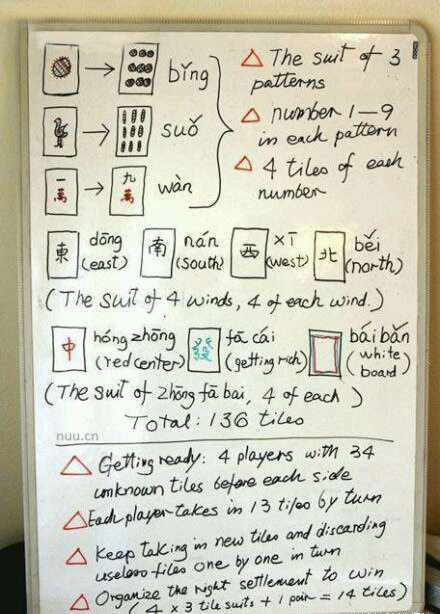 bǐng
suǒ
一萬 九萬 wàn
The suit of 3
patterns
number 1–9
in each pattern
4 tiles of each
number
東 dōng (east) 南 nán (south) 西 xī (west) 北 běi (north)
(The suit of 4 winds, 4 of each wind.)
中 hóng zhōng (red center) fā cái (getting rich) bái bǎn (white board)
(The suit of zhōng fā bai, 4 of each)
Total: 136 tiles
nuu.cn
Getting ready: 4 players with 34
unknown tiles before each side
Each player takes in 13 tiles by turn
Keep taking in new tiles and discarding
useless tiles one by one in turn
Organize the right settlement to win
(4 x 3 tile suits + 1 pair = 14 tiles)